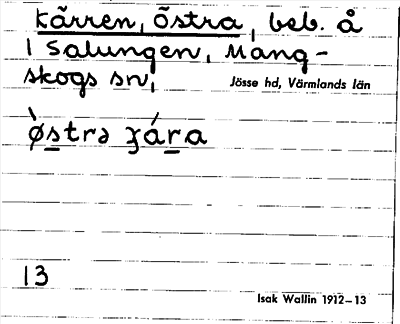 Kärren, Östra, beb. å
1 Salungen, Mang-
skogs sn,
Jösse hd, Värmlands län
ø̀strə ʒára
13
Isak Wallin 1912–13